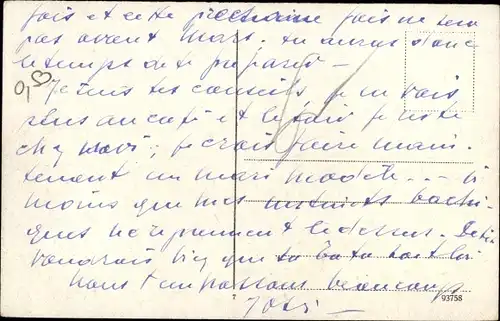 fois et cette prochaine fois ne sera
pas avant mars. tu auras donc
le temps de te préparer —
Je suis tes conseils je ne vais
plus au café et le soir je reste
chez moi; je crois faire main-
tenant un mari modèle... — à
moins que mes instincts bachi-
ques ne reprennent le dessus.
voudrais bien que
Nous t'embrassons beaucoup
7
93758